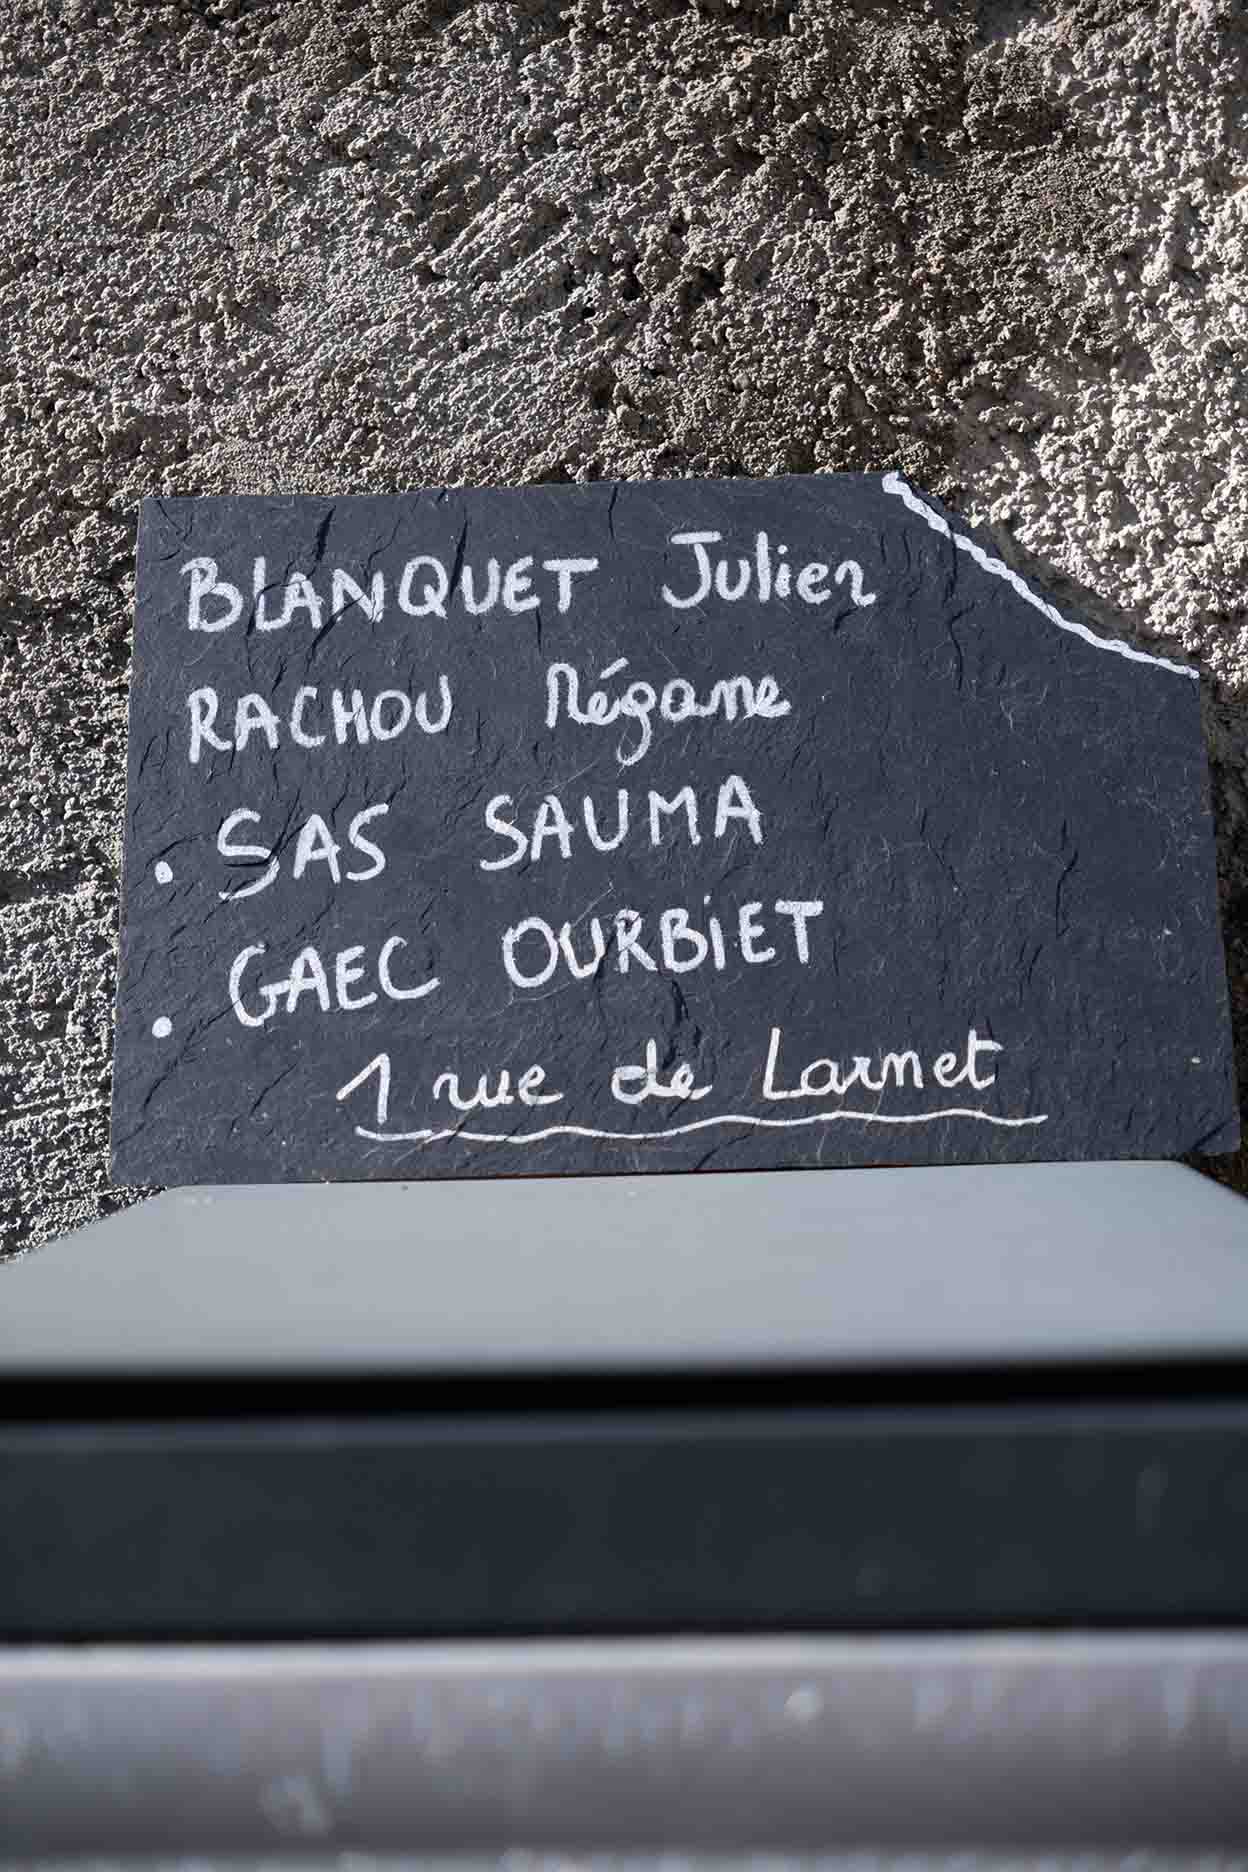 BLANQUET Julien
RACHOU Mégane
• SAS SAUMA
• GAEC OURBiET
1 rue de Larnet